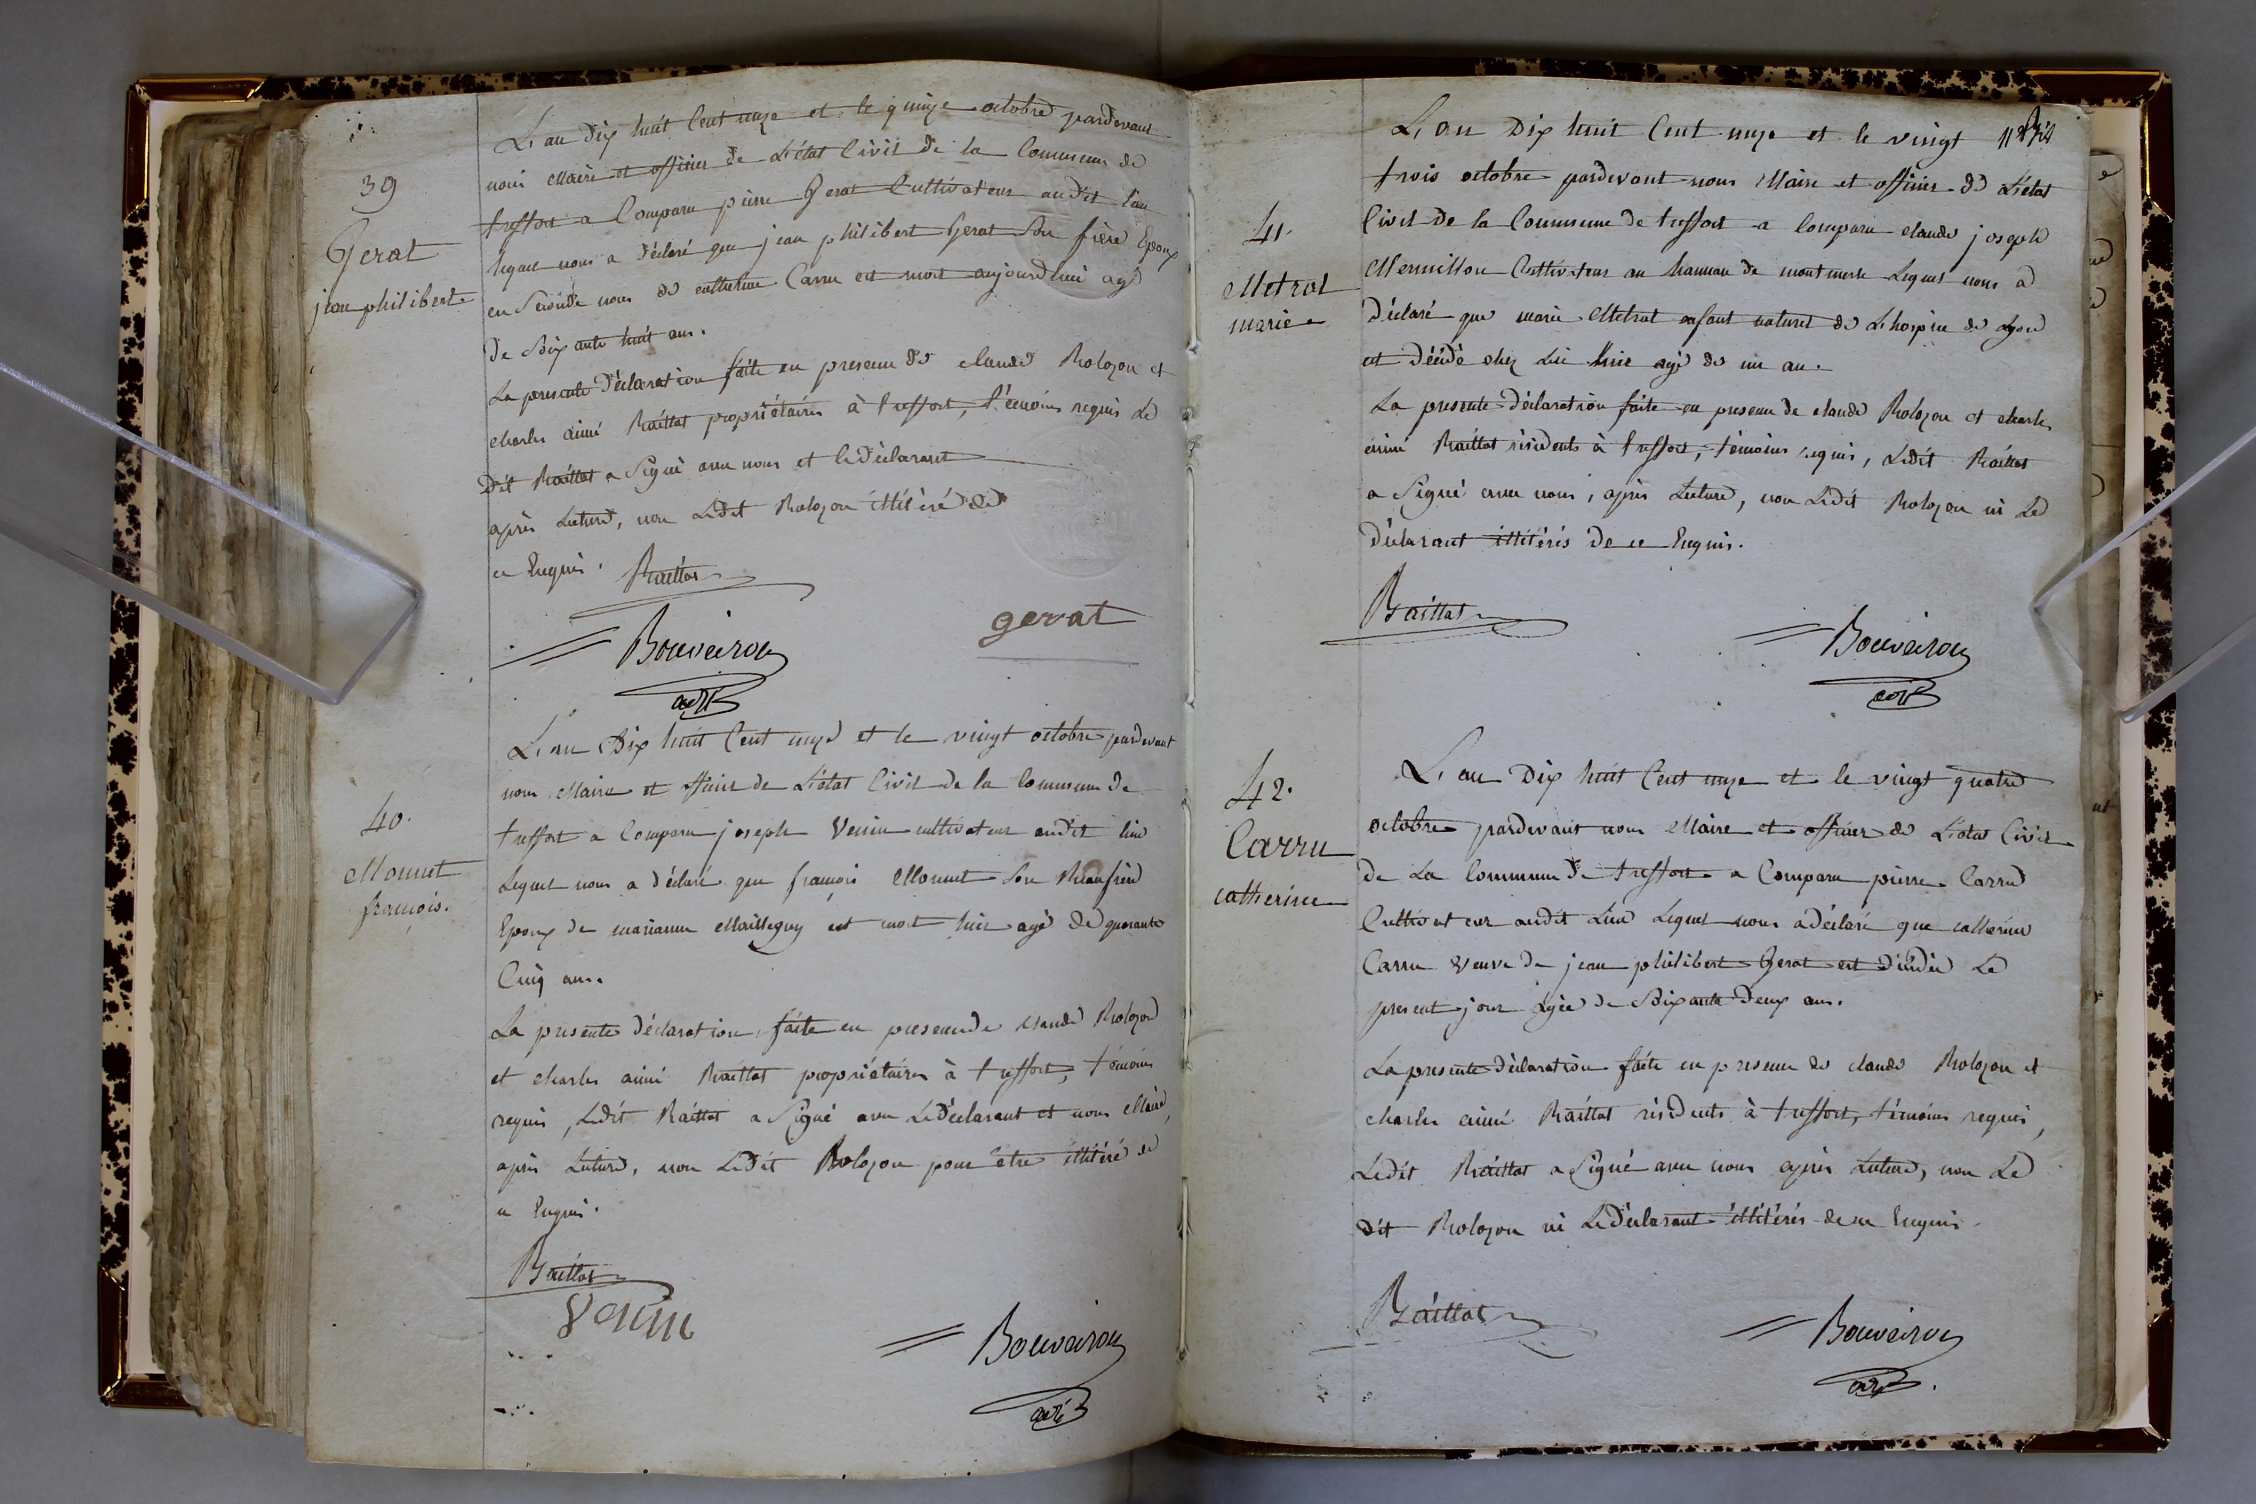 39
Gerat
jean philibert
L'an dix huit Cent onze et le quinze octobre pardevant
nous Maire et officier de L'état Civil de la Commune de
treffort a Comparu pierre Gerat Cultivateur audit lieu
lequel nous a déclaré que jean philibert Gerat Son frère Epoux
en Seconde nous de catherine Carru est mort aujourdhui agé
de Soixante huit ans.
La presente Déclaration faite en presence de claude Rolozon et
charles aimé Raillat propriétaires à treffort, témoins requis Le
Dit Raillat a Signé avec nous et le déclarant
après Lecture, non Ledit Rolozon illitéré de
ce Enquis.
Raillat
gerat
Bouveiron
adt
40.
Monnet
françois.
L'an Dix huit Cent onze et le vingt octobre pardevant
nous Maire et officier de L'état Civil de la Commune de
treffort a Comparu joseph Venin cultivateur audit lieu
Lequel nous a déclaré que françois Monnet Son Beaufrère
Epoux de marianne est mort hier agé de quarante
Cinq ans.
La presente déclaration faite en presence de claude Rolozon
et charles aimé Raillat propriétaires à treffort, témoins
requis, Ledit Raillat a Signé avec Le Déclarant et nous Maire,
après Lecture, non Ledit Rolozon pour être illitéré de
ce Enquis.
Raillat
Venin
Bouveiron
adt
41.
Metrat
marie
L'an Dix huit Cent onze et le vingt
trois octobre pardevant nous Maire et officier de L'état
Civil de la Commune de treffort a Comparu claude joseph
Mermillon Cultivateur au hameau de montmerle Lequel nous a
déclaré que marie Metrat enfant naturel de L'hospice de Lyon
est Décédé chez Lui hier agé de un an.
La presente déclaration faite en presence de claude Rolozon et charles
aimé Raillat résidents à treffort, témoins requis, Ledit Raillat
a Signé avec nous, après Lecture, non Ledit Rolozon ni Le
déclarant illitérés de ce Enquis.
Raillat
Bouveiron
adt
42.
Carru
catherine
L'an Dix huit Cent onze et le vingt quatre
octobre pardevant nous Maire et officier de L'état Civil
de La Commune de treffort a Comparu pierre Carru
Cultivateur audit Lieu Lequel nous a déclaré que catherine
Carru Veuve de jean philibert Gerat est décédée Le
present jour agée de Soixante Deux ans.
La presente déclaration faite en presence de claude Rolozon et
charles aimé Raillat résidents à treffort, témoins requis,
Ledit Raillat a Signé avec nous après Lecture, non Le
dit Rolozon ni Le Déclarant illitérés de ce Enquis.
Raillat
Bouveiron
adt